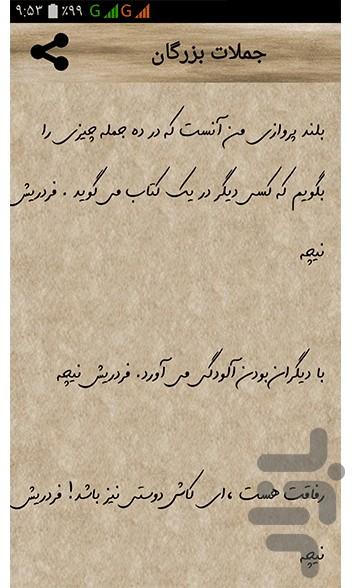 ۹:۵۳ ٪۹۹ G G
جملات بزرگان
بلند پروازی من آنست که در ده جمله چیزی را
بگویم که کسی دیگر در یک کتاب می گوید . فردریش
نیچه
با دیگران بودن آلودگی می آورد. فردریش نیچه
رفاقت هست ،ای کاش دوستی نیز باشد! فردریش
نیچه
بازار